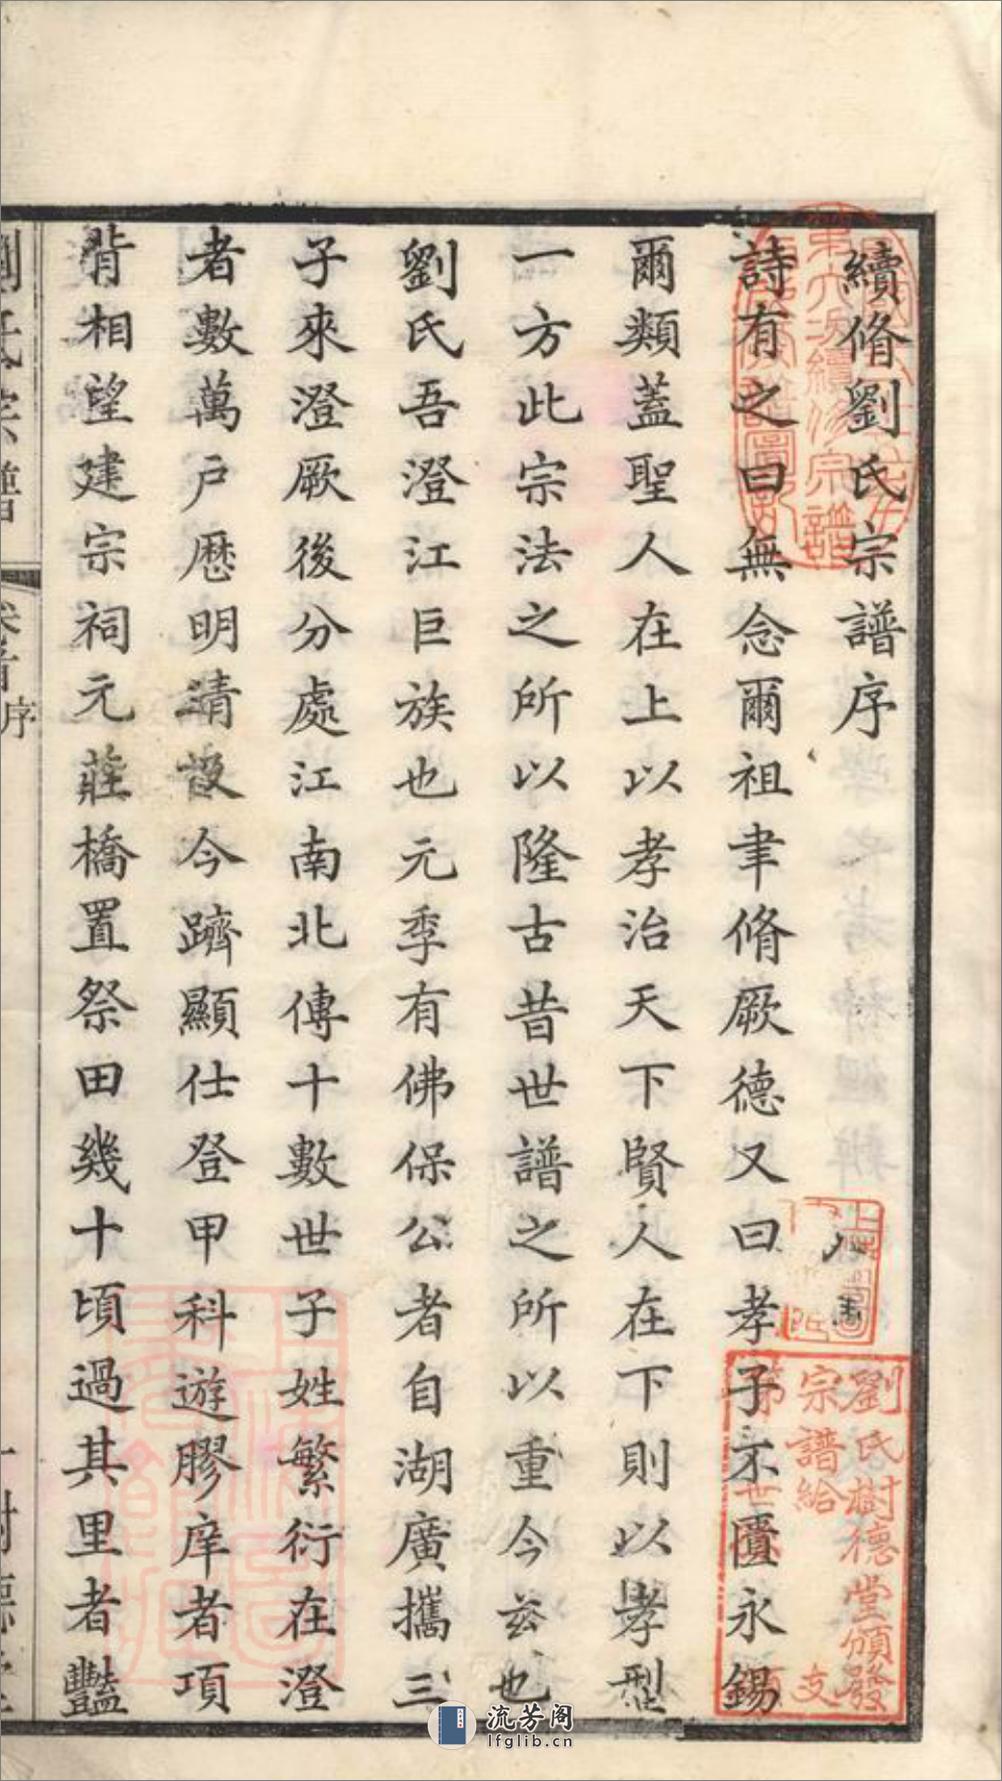 續脩劉氏宗譜序
詩有之曰無念爾祖聿脩厥德又曰孝子不匱永錫
爾類蓋聖人在上以孝治天下賢人在下則以孝型
一方此宗法之所以隆古昔世譜之所以重今茲也
劉氏吾澄江巨族也元季有佛保公者自湖廣攜三
子來澄厥後分處江南北傳十數世子姓繁衍在澄
者數萬戶歷明清設今躋顯仕登甲科遊膠庠者項
背相望建宗祠元莊橋置祭田幾十頃過其里者豔
劉氏宗譜
卷首
序
樹德堂
第六次續修宗譜
劉氏樹德堂頒發
宗譜給
支
第
世
流芳阁
lfglib.cn